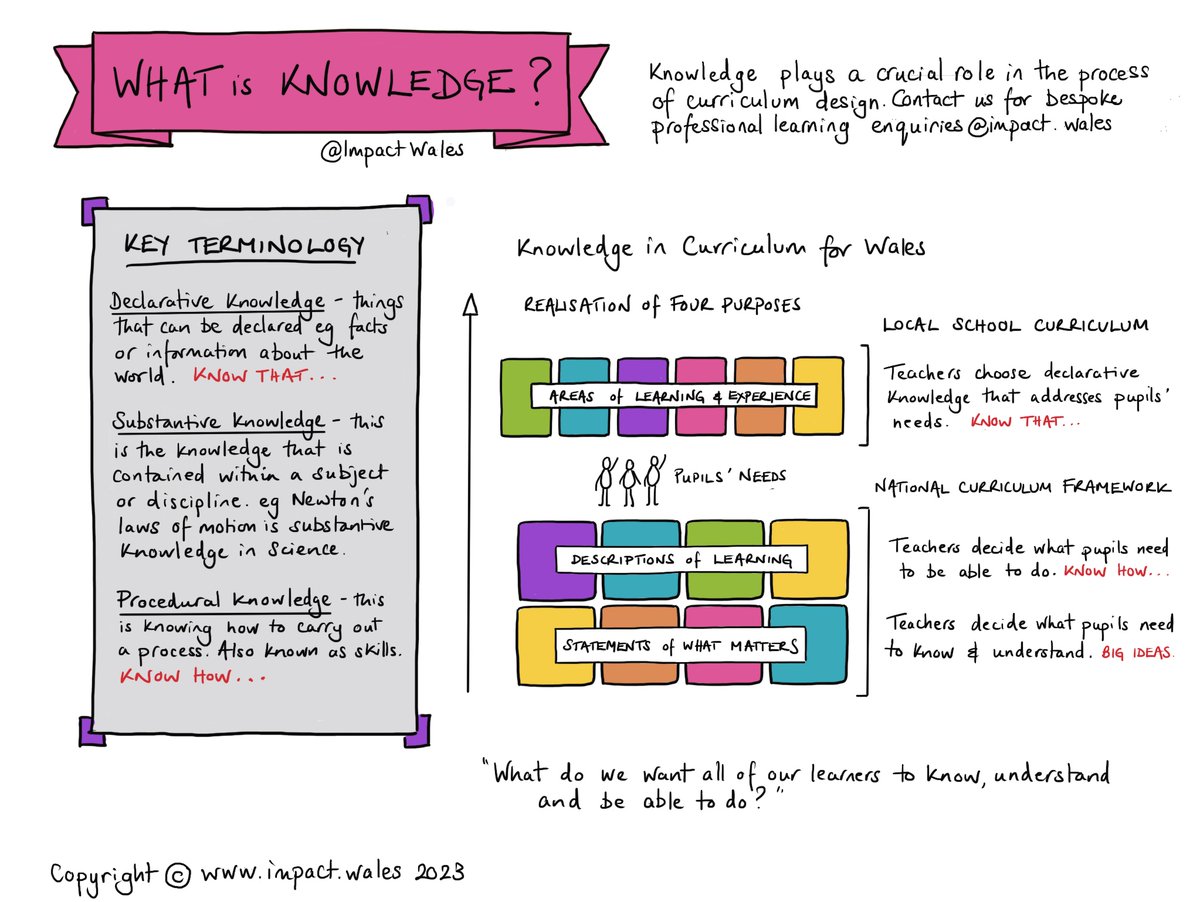 WHAT is KNOWLEDGE?
@Impact Wales
Knowledge plays a crucial role in the process
of curriculum design. Contact us for bespoke
professional learning enquiries@impact.wales
KEY TERMINOLOGY
Declarative Knowledge - things
that can be declared eg facts
or information about the
world. KNOW THAT...
Substantive Knowledge - this
is the knowledge that is
contained within a subject
or discipline. eg Newton's
laws of motion is substantive
knowledge in Science.
Procedural Knowledge - this
is knowing how to carry out
a process. Also known as skills.
KNOW HOW...
Knowledge in Curriculum for Wales
REALISATION of FOUR PURPOSES
AREAS of LEARNING & EXPERIENCE
LOCAL SCHOOL CURRICULUM
Teachers choose declarative
knowledge that addresses pupils'
needs. KNOW THAT...
PUPILS' NEEDS
NATIONAL CURRICULUM FRAMEWORK
DESCRIPTIONS of LEARNING
Teachers decide what pupils need
to be able to do. KNOW HOW...
STATEMENTS of WHAT MATTERS
Teachers decide what pupils need
to know & understand. BIG IDEAS.
"What do we want all of our learners to know, understand
and be able to do?"
Copyright © www.impact.wales 2023